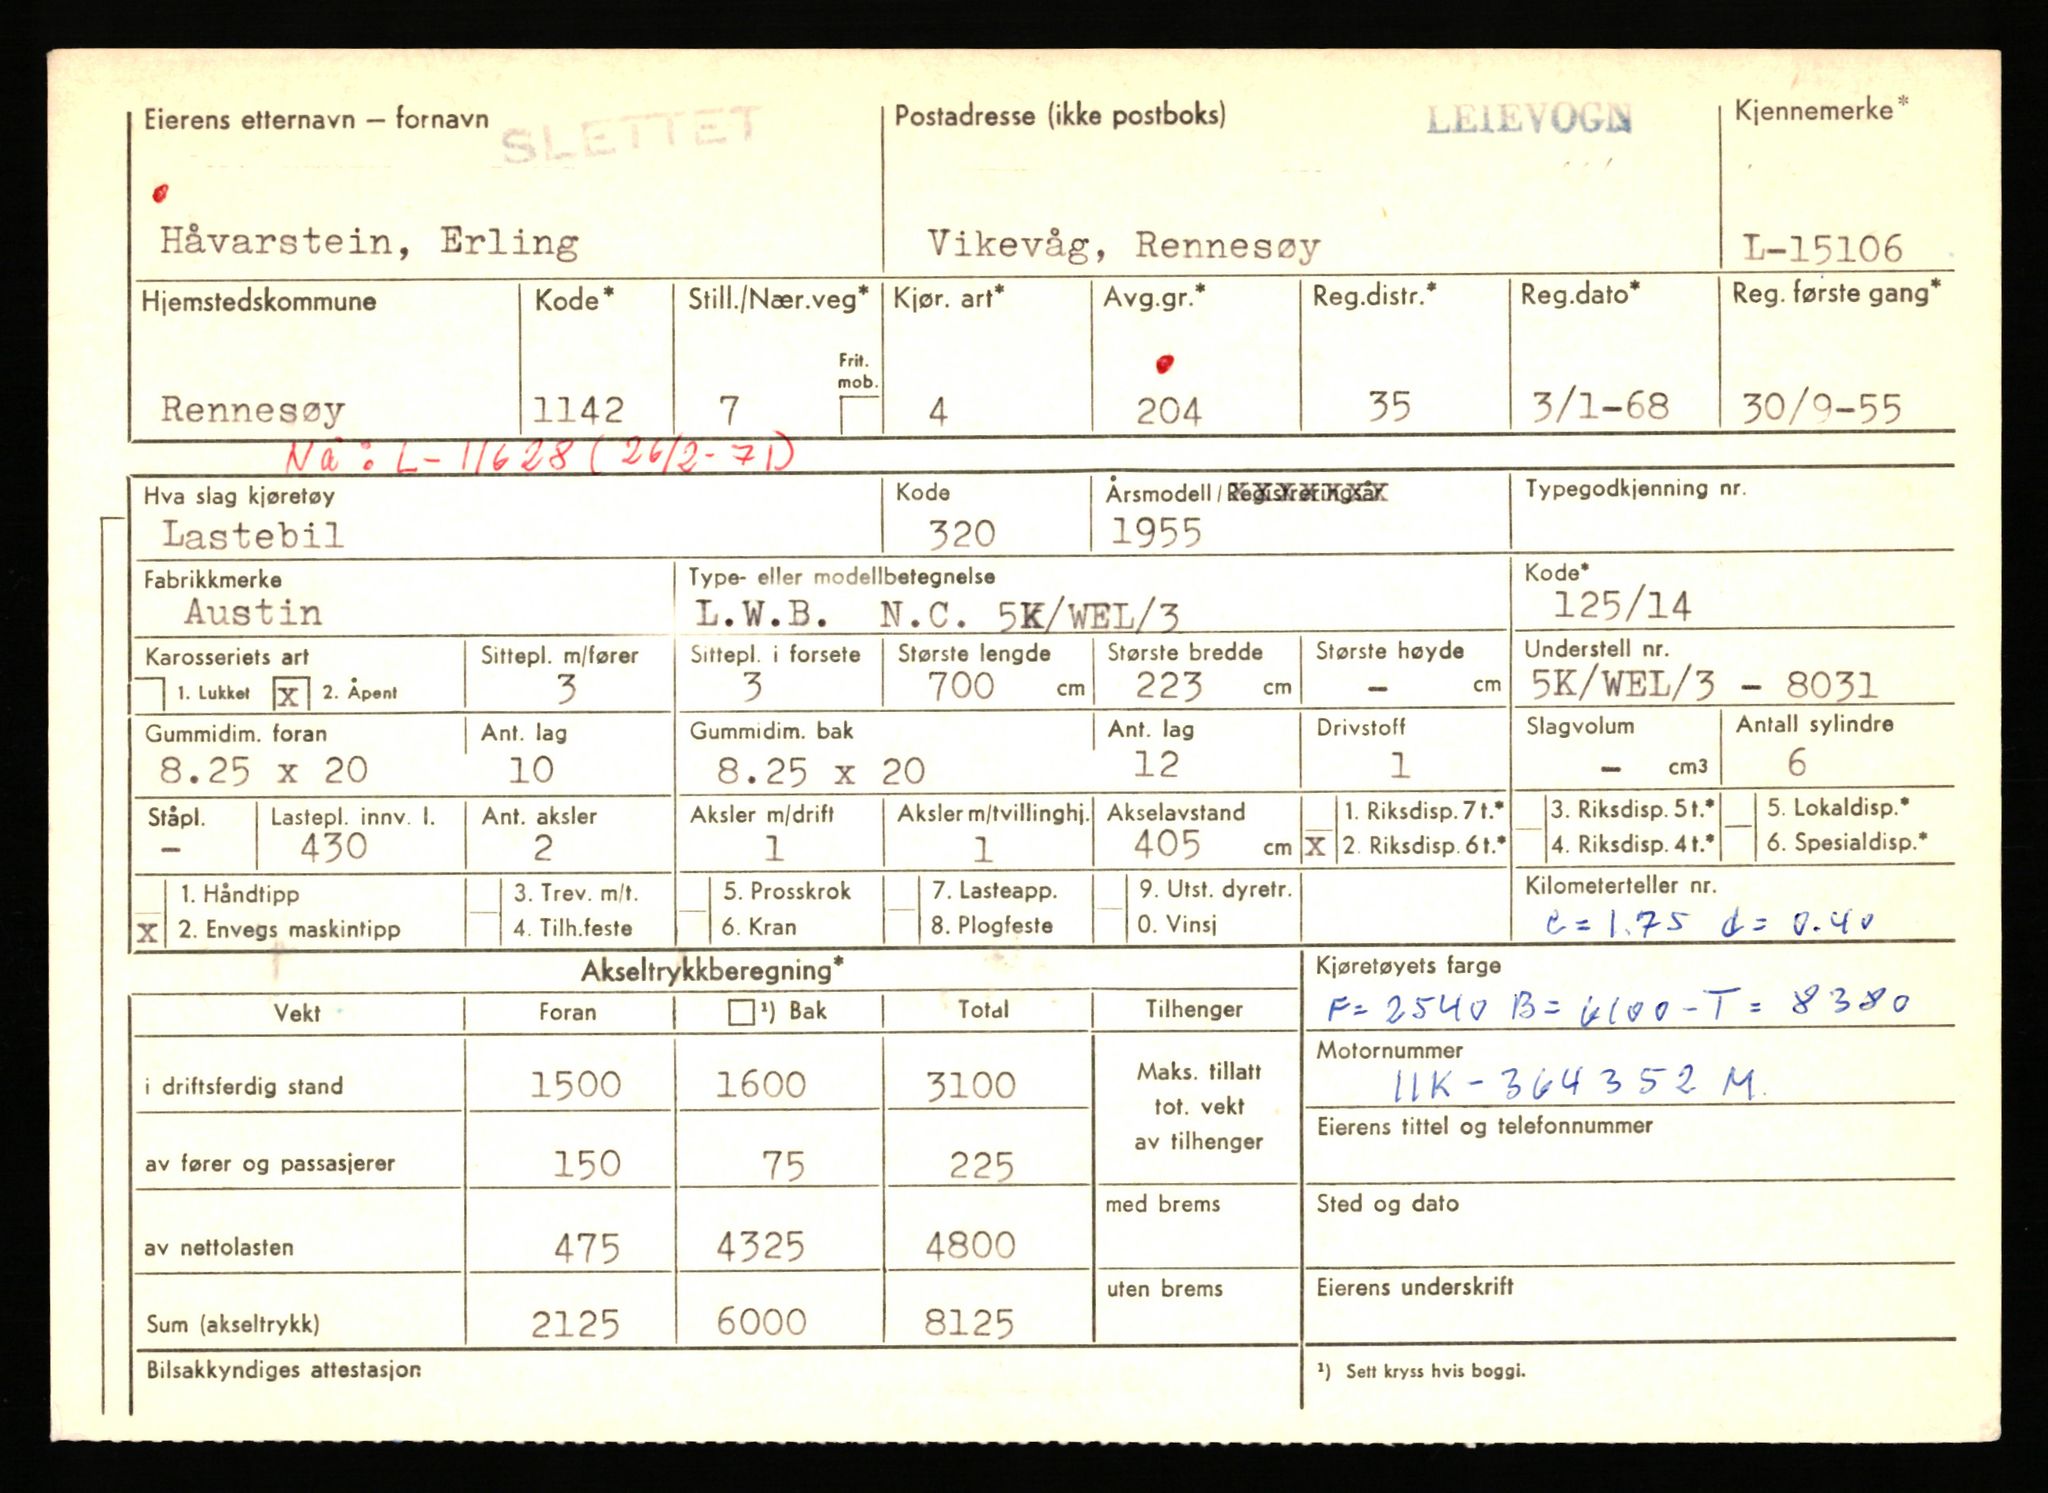 Eierens etternavn — fornavn SLETTET Postadresse (ikke postboks) LEIEVOGN Kjennemerke*
Håvarstein, Erling Vikevåg, Rennesøy L-15106
Hjemstedskommune Kode* Still./Nær.veg* Kjør. art* Avg.gr.* Reg.distr.* Reg.dato* Reg. første gang*
Frit.
mob.
Rennesøy 1142 7 4 204 35 3/1-68 30/9-55
Nå: L-11628 (26/2-71)
Hva slag kjøretøy Kode Årsmodell / Registreringsår Typegodkjenning nr.
Lastebil 320 1955
Fabrikkmerke Type- eller modellbetegnelse Kode*
Austin L.W.B. N.C. 5K/WEL/3 125/14
Karosseriets art Sittepl. m/fører Sittepl. i forsete Største lengde Største bredde Største høyde Understell nr.
1. Lukket X 2. Åpent 3 3 700 cm 223 cm - cm 5K/WEL/3 - 8031
Gummidim. foran Ant. lag Gummidim. bak Ant. lag Drivstoff Slagvolum Antall sylindre
8.25 x 20 10 8.25 x 20 12 1 - cm3 6
Ståpl. Lastepl. innv. l. Ant. aksler Aksler m/drift Aksler m/tvillinghj. Akselavstand 1. Riksdisp. 7 t.* 3. Riksdisp. 5 t.* 5. Lokaldisp.*
- 430 2 1 1 405 cm X 2. Riksdisp. 6 t.* 4. Riksdisp. 4 t.* 6. Spesialdisp.*
1. Håndtipp 3. Trev. m/t. 5. Prosskrok 7. Lasteapp. 9. Utst. dyretr. Kilometerteller nr.
X 2. Envegs maskintipp 4. Tilh.feste 6. Kran 8. Plogfeste 0. Vinsj c = 1.75 d = 0.40
Akseltrykkberegning* Kjøretøyets farge
Vekt Foran ¹) Bak Total Tilhenger F= 2540 B= 6100 - T= 8380
Motornummer
i driftsferdig stand 1500 1600 3100 Maks. tillatt 11K - 364352 M.
tot. vekt
av tilhenger Eierens tittel og telefonnummer
av fører og passasjerer 150 75 225
med brems Sted og dato
av nettolasten 475 4325 4800
uten brems Eierens underskrift
Sum (akseltrykk) 2125 6000 8125
Bilsakkyndiges attestasjon ¹) Sett kryss hvis boggi.